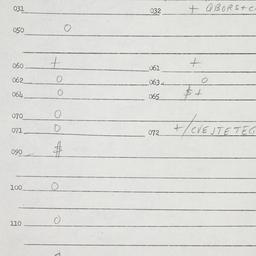 031 032 + QBORS+C
050 0
060 + 061 +
062 0 063 0
064 0 065 $ +
070 0
071 0 072 +/CVEJTETEG
090 #
100 0
110 0